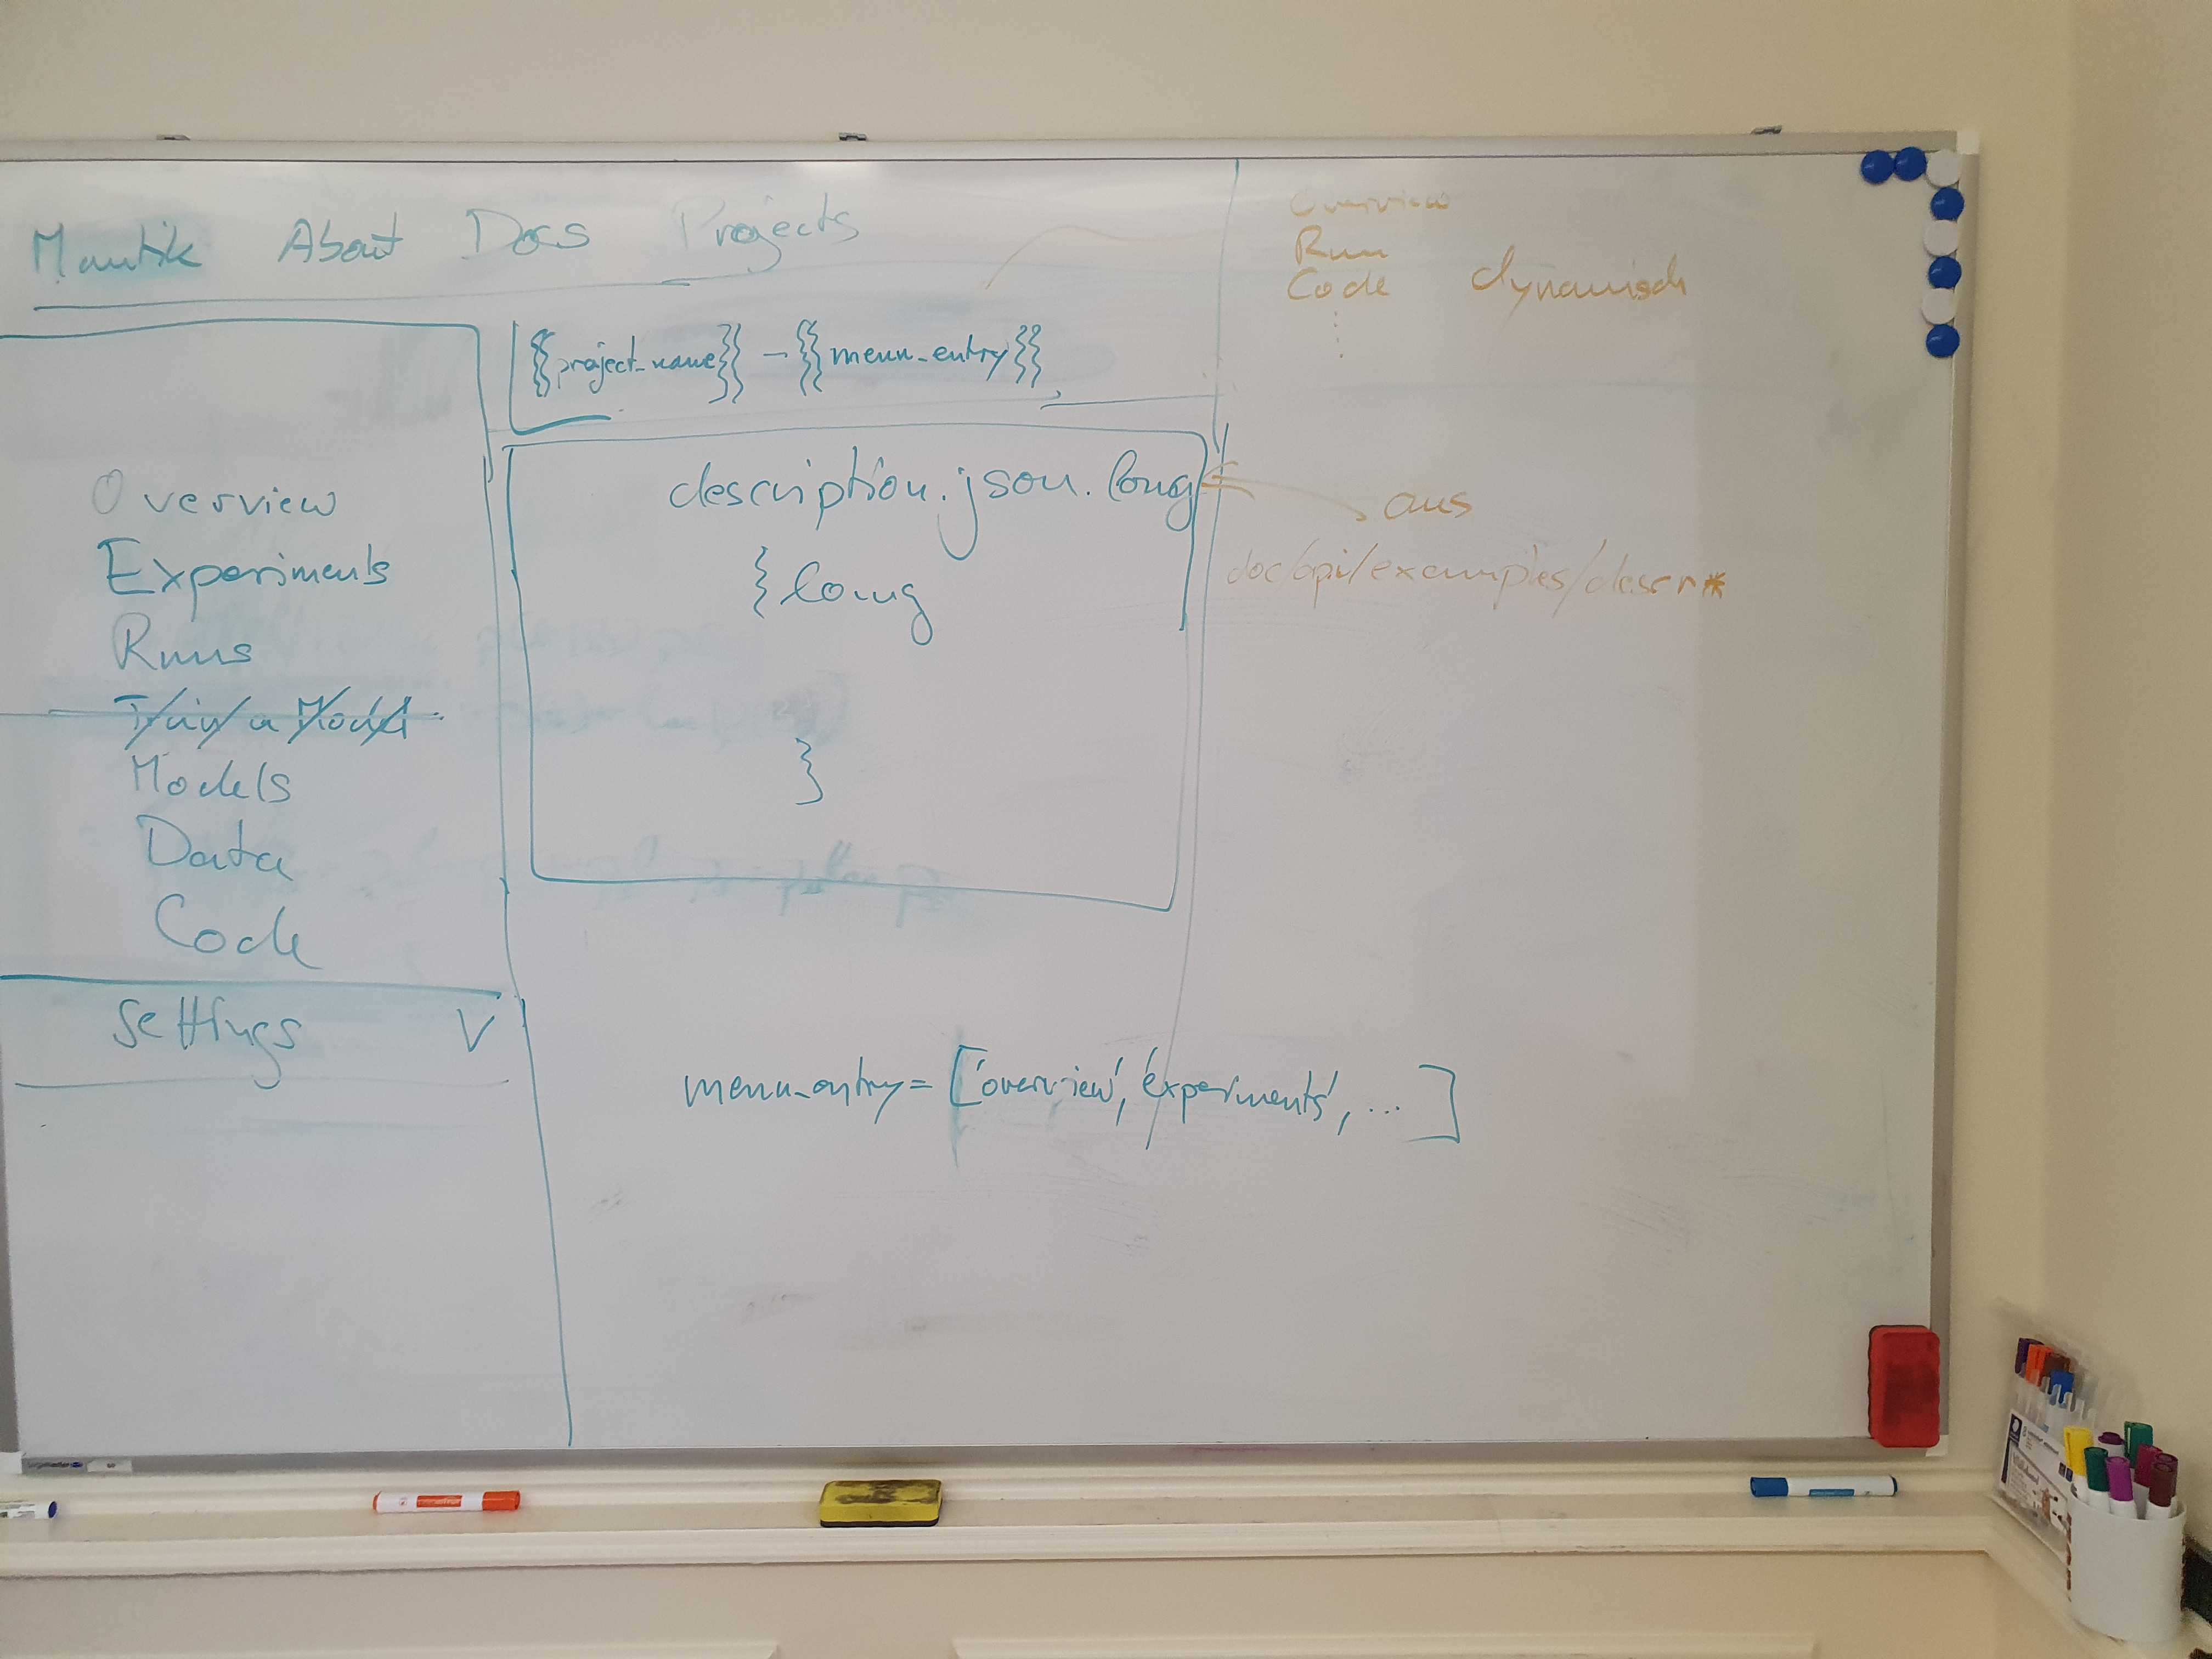 Mantik About Docs Projects
{{project_name}} - {{menu_entry}}
Overview
Experiments
Runs
Train a Model
Models
Data
Code
Settings V
description.json.long
{long
}
menu_entry = ['overview', 'experiments', ... ]
Overview
Run
Code dynamisch
aus
doc/api/examples/descr*